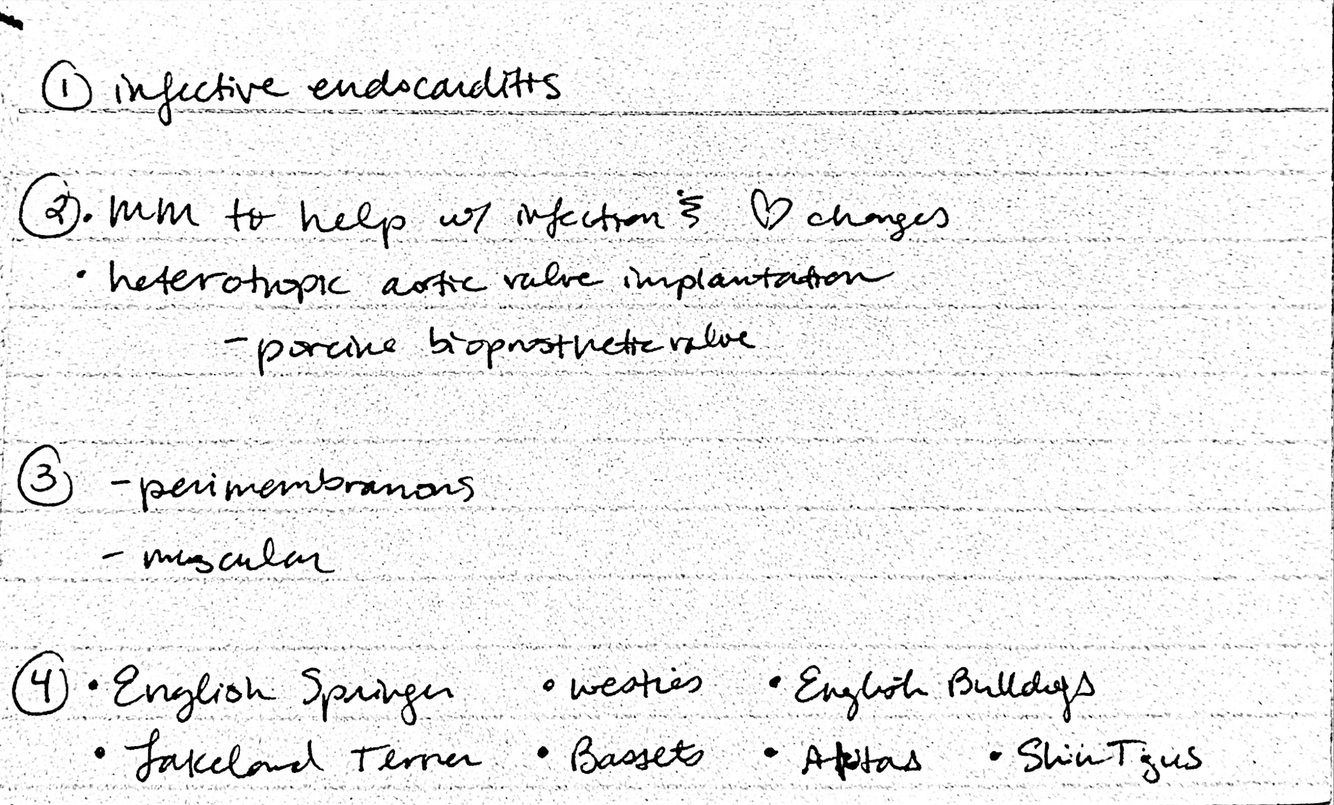 ① infective endocarditis
②. MM to help w/ infection & ♡ changes
• heterotropic aortic valve implantation
- porcine bioprosthetic valve
③ - perimembranous
- muscular
④ • English Springer • Westies • English Bulldogs
• Lakeland Terrier • Bassets • Akitas • Shih Tzus